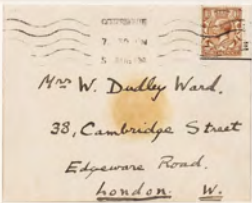 Mrs W. Dudley Ward.
38, Cambridge Street
Edgeware Road.
London. W.